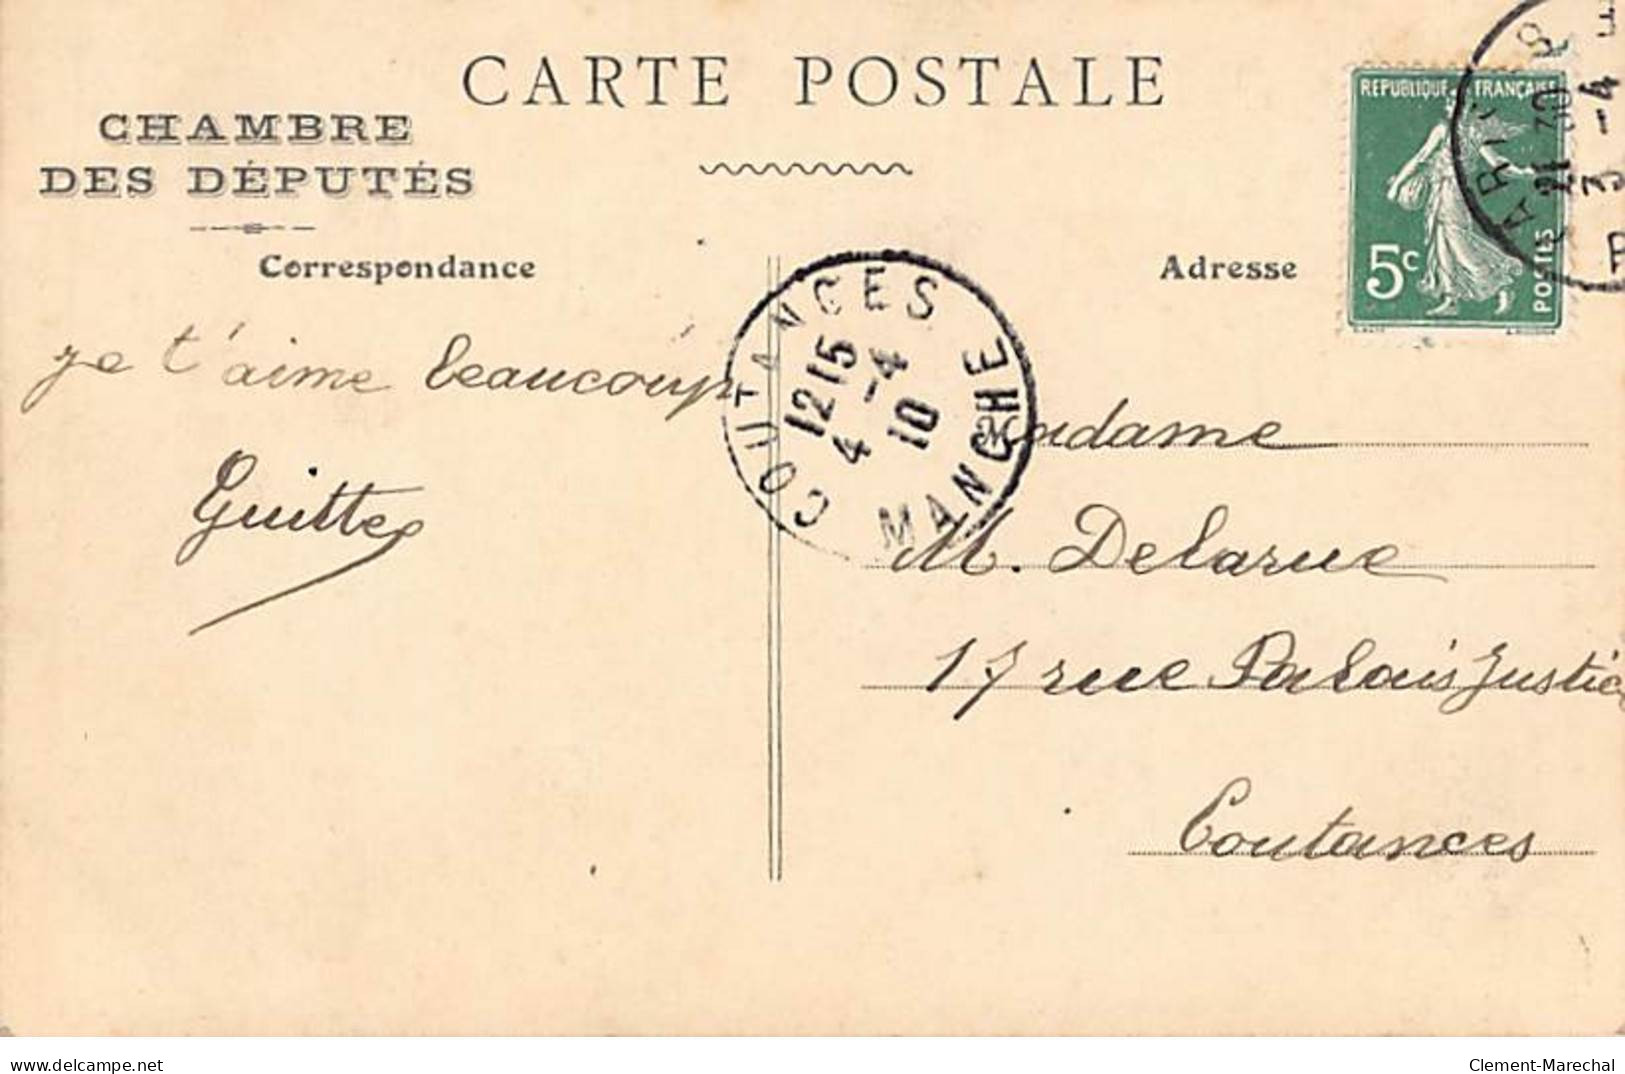 CARTE POSTALE
CHAMBRE
DES DÉPUTÉS
Correspondance
Adresse
REPUBLIQUE FRANÇAISE
5c
POSTES
PARIS
21 30
3 -4
COUTANCES
12 15
4 -4
10
MANCHE
je t'aime beaucoup
Guitte
Madame
M. Delarue
17 rue Palais Justice
Coutances
www.delcampe.net
Clement-Marechal